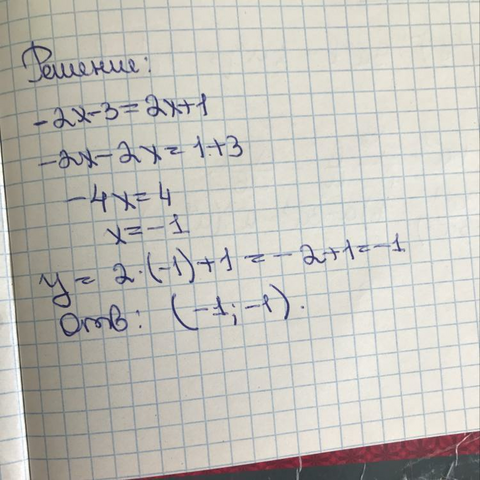 Решение:
-2x-3=2x+1
-2x-2x=1+3
-4x=4
x=-1
y= 2·(-1)+1=-2+1=-1
Отв: (-1;-1).